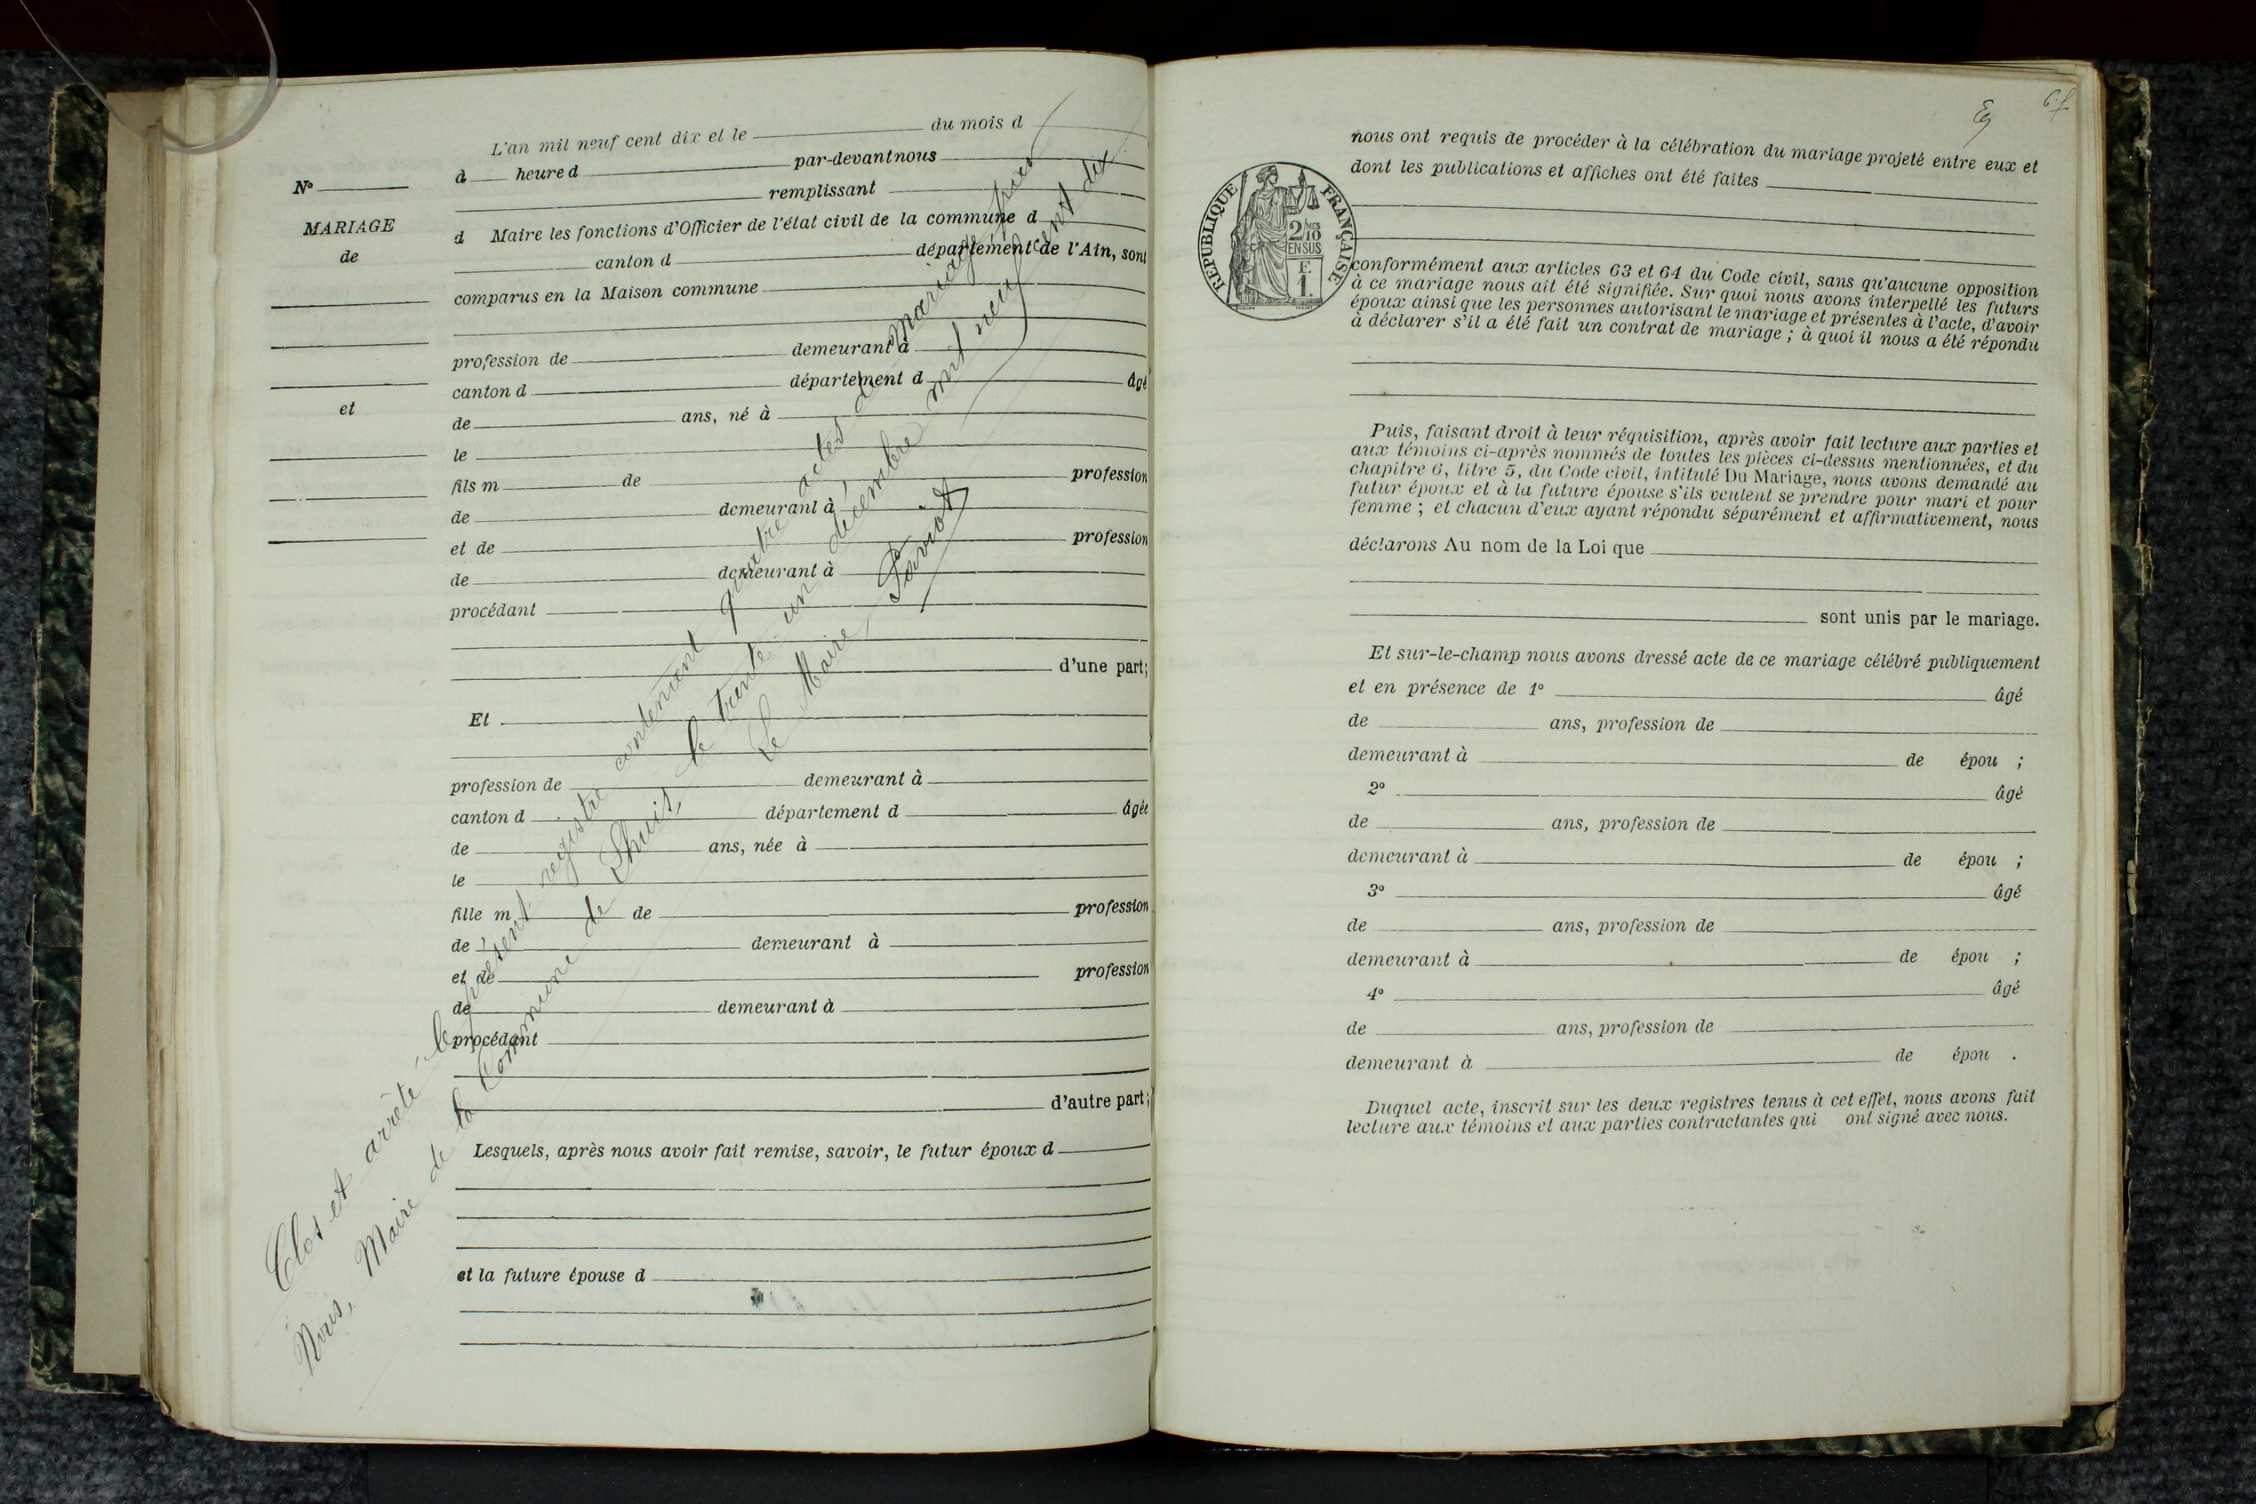 L'an mil neuf cent dix et le du mois d
à heure d par-devant nous
N°
remplissant
MARIAGE
d Maire les fonctions d'Officier de l'état civil de la commune d
de
canton d département de l'Ain, sont
comparus en la Maison commune
profession de demeurant à
canton d département d âgé
et
de ans, né à
le
fils m de profession
de demeurant à
et de profession
de demeurant à
procédant
d'une part;
Et
profession de demeurant à
canton d département d âgée
de ans, née à
le
fille m de profession
de demeurant à
et de profession
de demeurant à
procédant
d'autre part;
Lesquels, après nous avoir fait remise, savoir, le futur époux d
et la future épouse d
Clos et arrêté le présent registre contenant quatre actes de mariage par
Nous, Maire de la Commune de Lhuis, le trente un décembre mil neuf cent dix
Le Maire,
nous ont requis de procéder à la célébration du mariage projeté entre eux et
dont les publications et affiches ont été faites
RÉPUBLIQUE FRANÇAISE
2/10 MES
EN SUS
F.
1.
conformément aux articles 63 et 64 du Code civil, sans qu'aucune opposition
à ce mariage nous ait été signifiée. Sur quoi nous avons interpellé les futurs
époux ainsi que les personnes autorisant le mariage et présentes à l'acte, d'avoir
à déclarer s'il a été fait un contrat de mariage ; à quoi il nous a été répondu
Puis, faisant droit à leur réquisition, après avoir fait lecture aux parties et
aux témoins ci-après nommés de toutes les pièces ci-dessus mentionnées, et du
chapitre 6, titre 5, du Code civil, intitulé Du Mariage, nous avons demandé au
futur époux et à la future épouse s'ils veulent se prendre pour mari et pour
femme ; et chacun d'eux ayant répondu séparément et affirmativement, nous
déclarons Au nom de la Loi que
sont unis par le mariage.
Et sur-le-champ nous avons dressé acte de ce mariage célébré publiquement
et en présence de 1° âgé
de ans, profession de
demeurant à de épou ;
2° âgé
de ans, profession de
demeurant à de épou ;
3° âgé
de ans, profession de
demeurant à de épou ;
4° âgé
de ans, profession de
demeurant à de épou .
Duquel acte, inscrit sur les deux registres tenus à cet effet, nous avons fait
lecture aux témoins et aux parties contractantes qui ont signé avec nous.